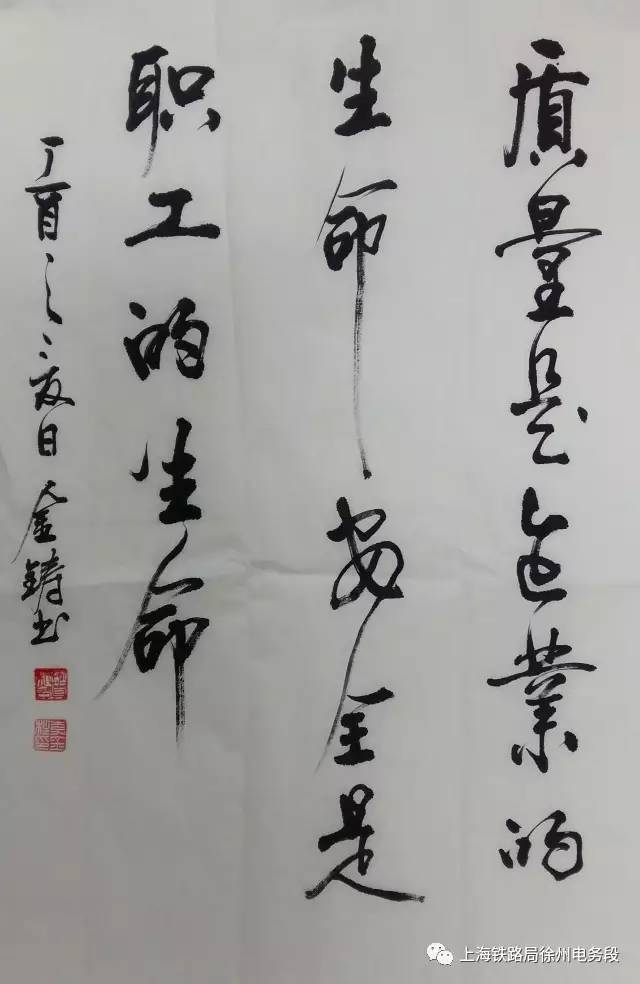 质量是企业的
生命安全是
职工的生命
丁酉之夏日金铸书
上海铁路局徐州电务段